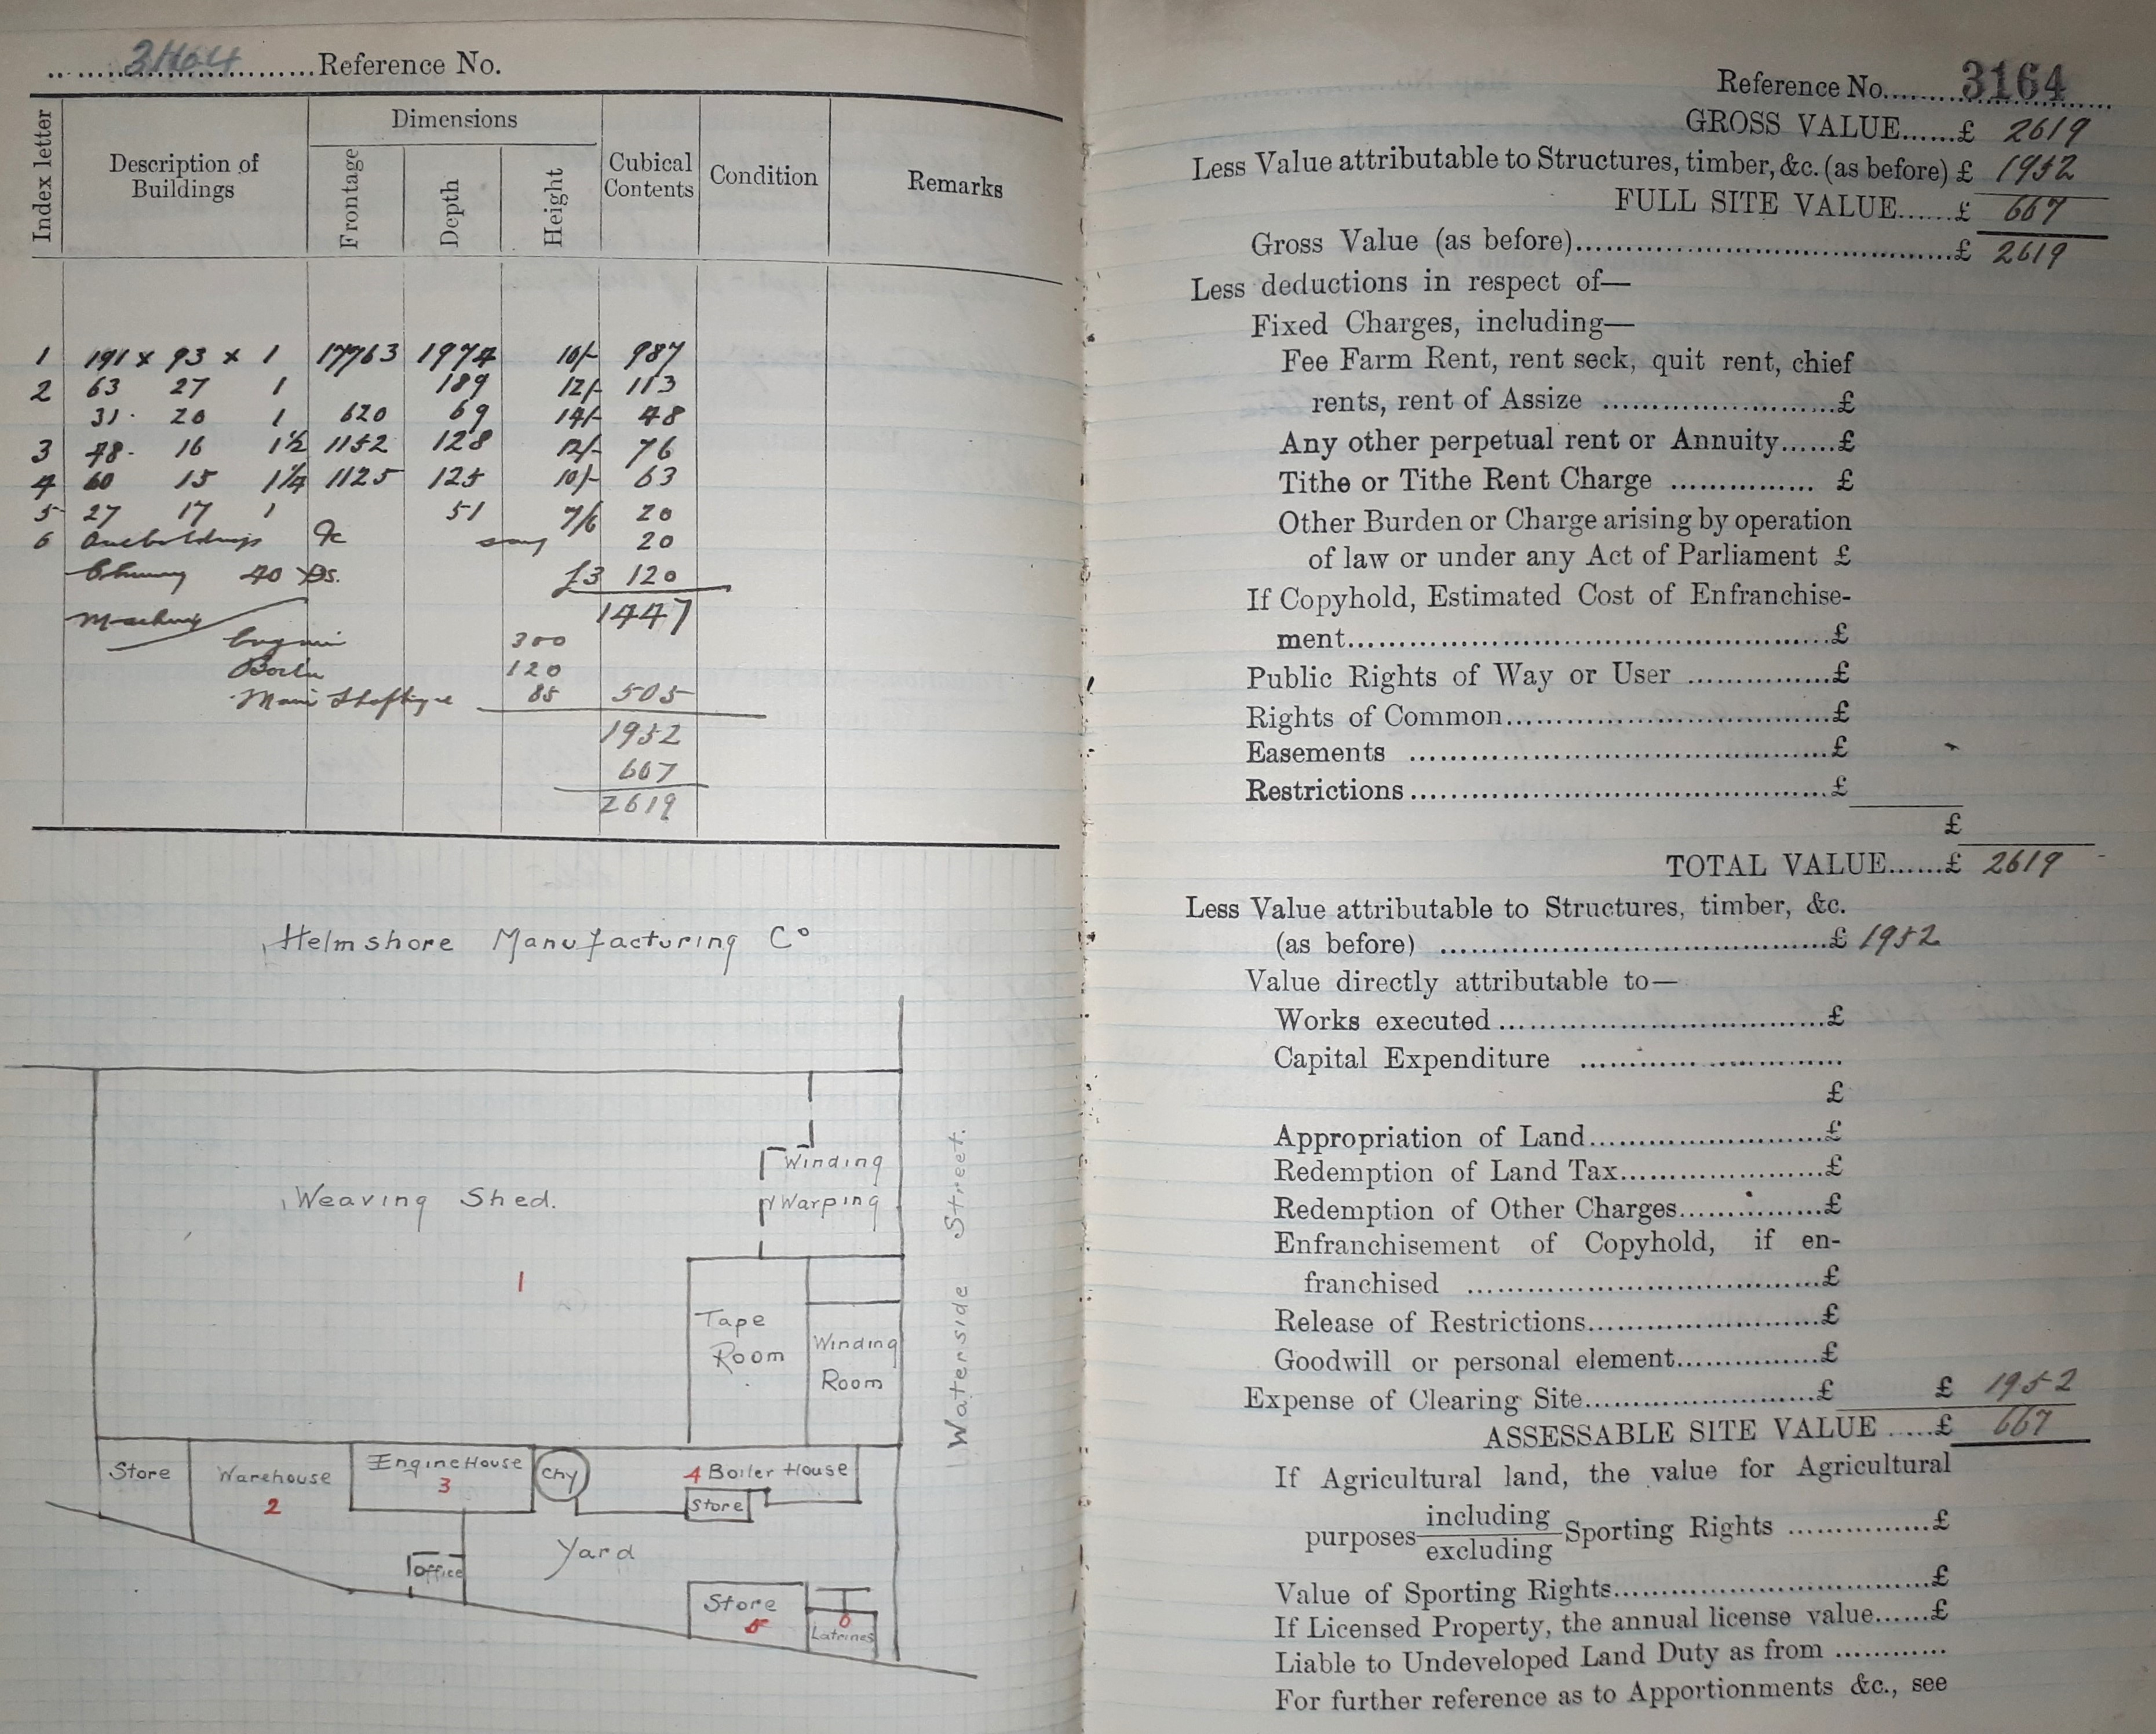 3164 Reference No.
Index letter
Description of Buildings
Dimensions
Frontage
Depth
Height
Cubical Contents
Condition
Remarks
1 191 x 93 x 1 17763 1974 10/- 987
2 63 27 1 189 12/- 113
31 20 1 620 69 14/- 48
3 48 16 1½ 1152 128 12/- 76
4 60 15 1¼ 1125 125 10/- 63
5 27 17 1 51 7/6 20
6 Outbuildings &c say 20
Chimney 40 Yds. £3 120
1447
Machinery
Engine 300
Boiler 120
Main Shafting 85 505
1952
667
2619
Helmshore Manufacturing Co
Weaving Shed.
1
Winding
Warping
Tape Room
Winding Room
Waterside Street.
Store
Warehouse
2
Engine House
3
Chy
4 Boiler House
Store
Office
Yard
Store
5
6
Latrines
Reference No. 3164
GROSS VALUE......£ 2619
Less Value attributable to Structures, timber, &c. (as before) £ 1952
FULL SITE VALUE......£ 667
Gross Value (as before)......£ 2619
Less deductions in respect of—
Fixed Charges, including—
Fee Farm Rent, rent seck, quit rent, chief
rents, rent of Assize ......£
Any other perpetual rent or Annuity......£
Tithe or Tithe Rent Charge ...... £
Other Burden or Charge arising by operation
of law or under any Act of Parliament £
If Copyhold, Estimated Cost of Enfranchise-
ment......£
Public Rights of Way or User ......£
Rights of Common......£
Easements ......£
Restrictions......£
£
TOTAL VALUE......£ 2619
Less Value attributable to Structures, timber, &c.
(as before) ......£ 1952
Value directly attributable to—
Works executed ......£
Capital Expenditure ......
£
Appropriation of Land......£
Redemption of Land Tax......£
Redemption of Other Charges......£
Enfranchisement of Copyhold, if en-
franchised ......£
Release of Restrictions......£
Goodwill or personal element......£
Expense of Clearing Site......£ £ 1952
ASSESSABLE SITE VALUE ......£ 667
If Agricultural land, the value for Agricultural
purposes including
excluding Sporting Rights ......£
Value of Sporting Rights......£
If Licensed Property, the annual license value......£
Liable to Undeveloped Land Duty as from ......
For further reference as to Apportionments &c., see